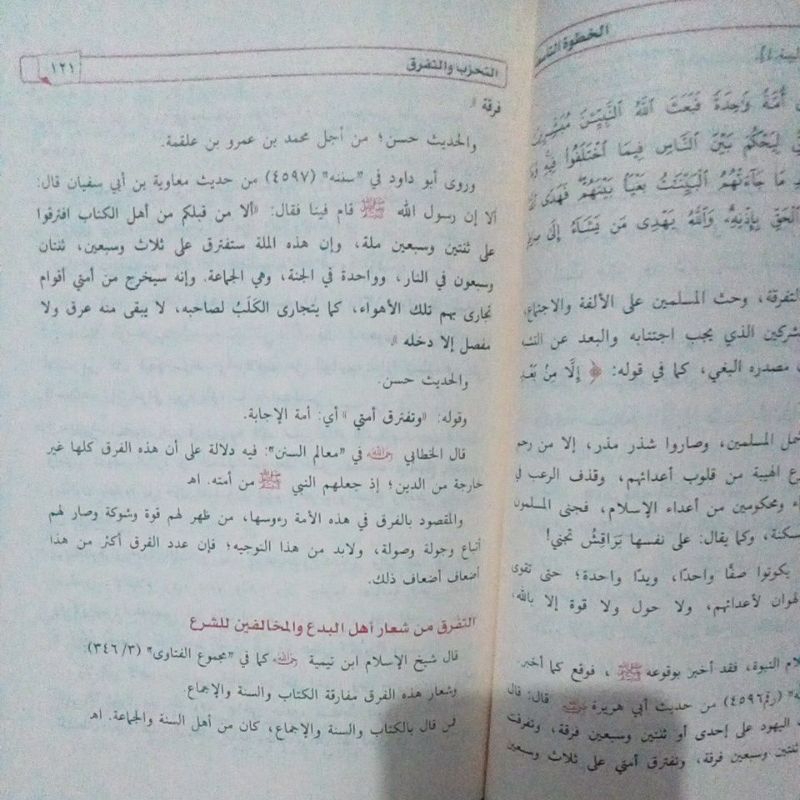 الخطوة التاسعة
أمة واحدة فبعث الله النبيين مبشرين
ليحكم بين الناس فيما اختلفوا فيه
ما جاءتهم البينات بغيا بينهم فهدى
الحق بإذنه والله يهدي من يشاء إلى
التفرقة، وحث المسلمين على الألفة والاجتماع
الذي يجب اجتنابه والبعد عن
مصدره البغي، كما في قوله: ﴿ إلا من بعد
المسلمين، وصاروا شذر مذر، إلا من رحم
الهيبة من قلوب أعدائهم، وقذف الرعب في
ومحكومين من أعداء الإسلام، فجنى المسلمون
وكما يقال: على نفسها بَرَاقِشُ تجني!
يكونوا صفًا واحدًا، ويدًا واحدة؛ حتى تقوى
لأعدائهم، ولا حول ولا قوة إلا بالله،
النبوة، فقد أخبر بوقوعه ﷺ، فوقع كما أخبر.
(رقم ٤٥٩٦) من حديث أبي هريرة رضي الله عنه قال: قال
اليهود على إحدى أو ثنتين وسبعين فرقة، وتفرقت
ثنتين وسبعين فرقة، وتفترق أمتي على ثلاث وسبعين
التحزب والتفرق
١٢١
فرقة»
والحديث حسن؛ من أجل محمد بن عمرو بن علقمة.
وروى أبو داود في "سننه" (٤٥٩٧) من حديث معاوية بن أبي سفيان قال:
ألا إن رسول الله ﷺ قام فينا فقال: «ألا من قبلكم من أهل الكتاب افترقوا
على ثنتين وسبعين ملة، وإن هذه الملة ستفترق على ثلاث وسبعين، ثنتان
وسبعون في النار، وواحدة في الجنة، وهي الجماعة. وإنه سيخرج من أمتي أقوام
تجارى بهم تلك الأهواء، كما يتجارى الكَلَبُ لصاحبه، لا يبقى منه عرق ولا
مفصل إلا دخله»
والحديث حسن.
وقوله: «وتفترق أمتي» أي: أمة الإجابة.
قال الخطابي رحمه الله في "معالم السنن": فيه دلالة على أن هذه الفرق كلها غير
خارجة من الدين؛ إذ جعلهم النبي ﷺ من أمته. اهـ
والمقصود بالفرق في هذه الأمة رءوسها، من ظهر لهم قوة وشوكة وصار لهم
أتباع وجولة وصولة، ولابد من هذا التوجيه؛ فإن عدد الفرق أكثر من هذا
أضعاف أضعاف ذلك.
التفرق من شعار أهل البدع والمخالفين للشرع
قال شيخ الإسلام ابن تيمية رحمه الله كما في "مجموع الفتاوى" (٣٤٦/٣):
وشعار هذه الفرق مفارقة الكتاب والسنة والإجماع.
فمن قال بالكتاب والسنة والإجماع، كان من أهل السنة والجماعة. اهـ